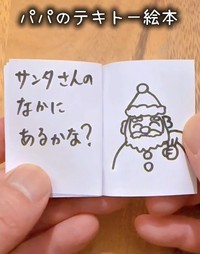 パパのテキトー絵本
サンタさんの
なかに
あるかな?